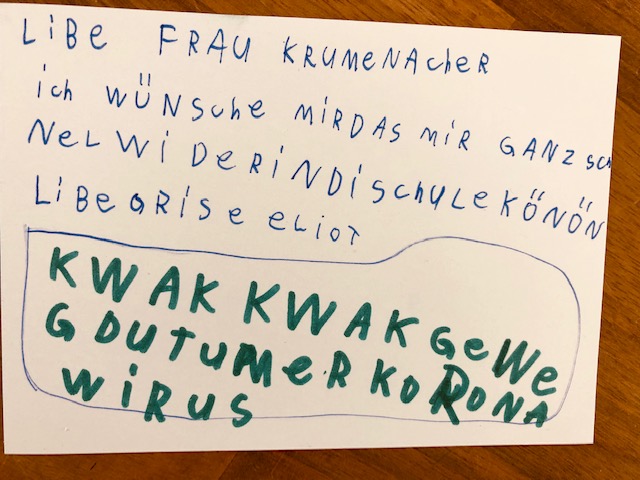 LiBE FRAU KRUMENACHER
ich WÜNSche MiRDAS MiR GANZ SCH
NeL Wi DeRiNDiSchULe KÖNÖN
LiBeGRiSe eLiOT
KWAK KWAK GeWe
G DUTUMeR KORONA
WiRUS